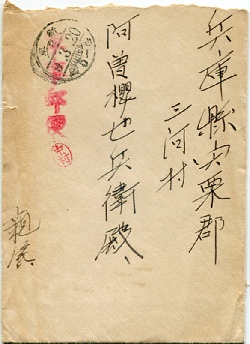 兵庫縣宍粟郡
三河村
阿曽櫻也兵衛殿、
親展、